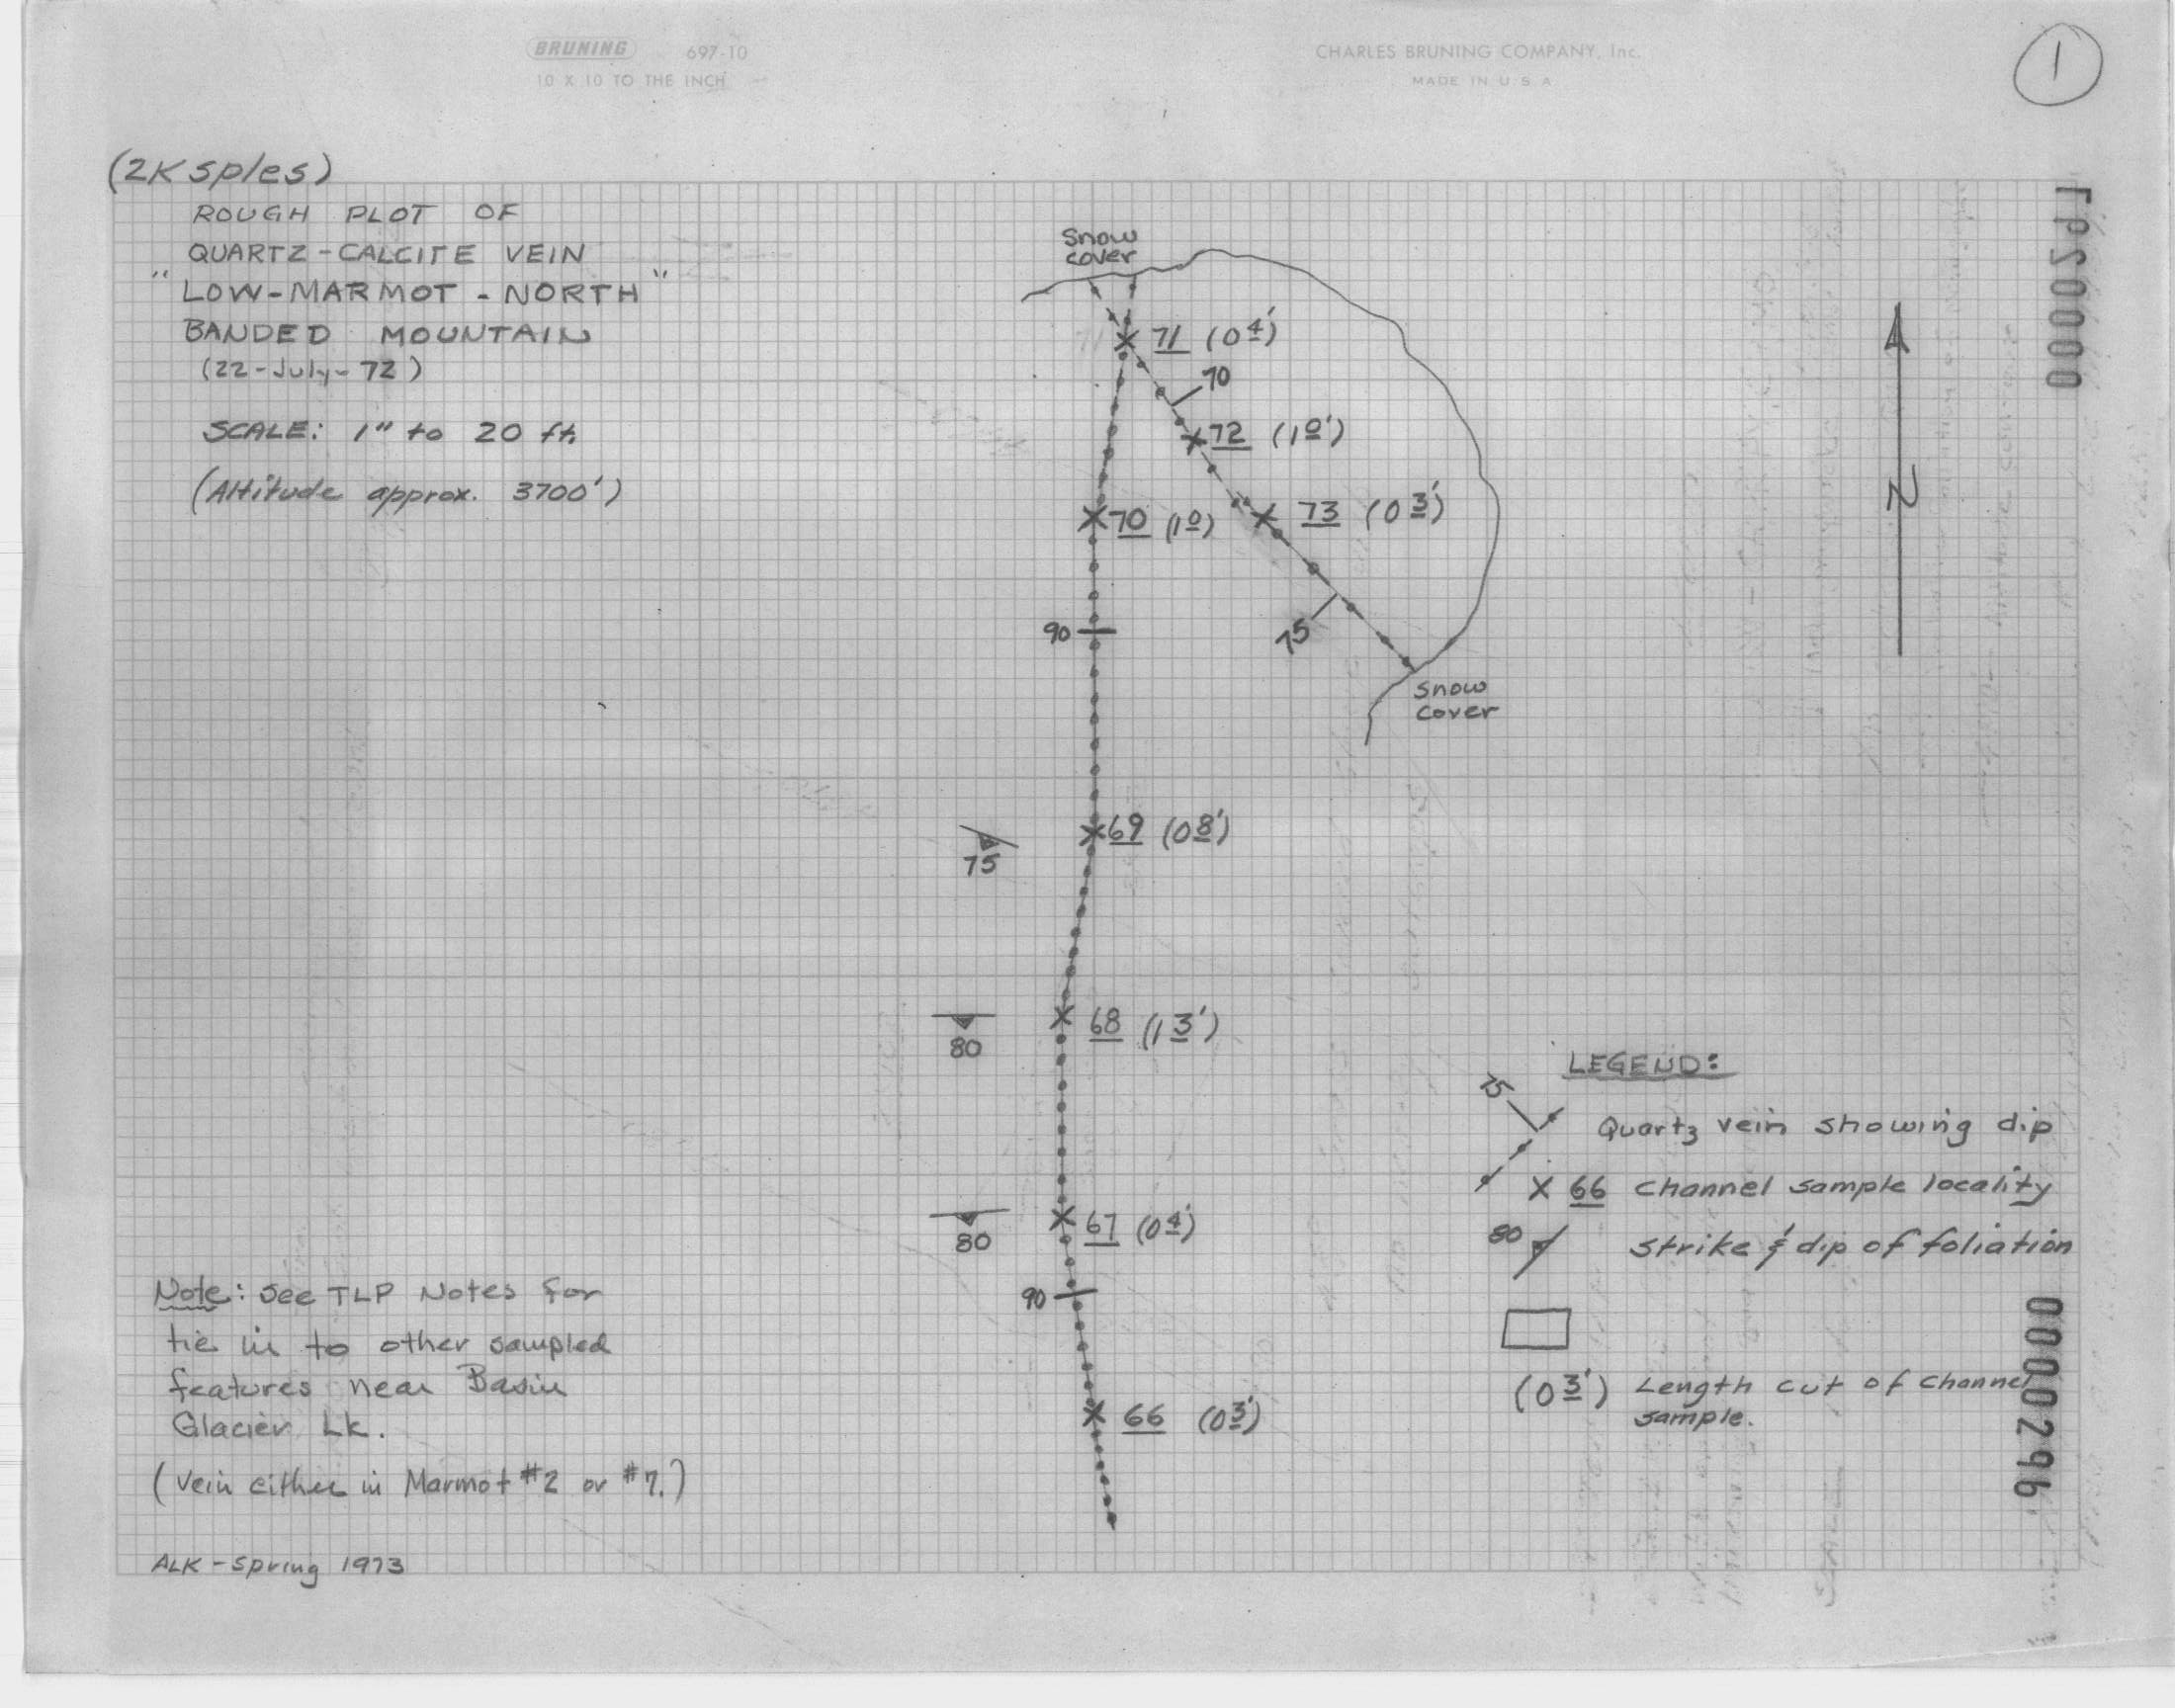 BRUNING 697-10
10 X 10 TO THE INCH
CHARLES BRUNING COMPANY, Inc.
MADE IN U.S.A
1
(2K sples)
ROUGH PLOT OF
QUARTZ-CALCITE VEIN
"LOW-MARMOT - NORTH"
BANDED MOUNTAIN
(22-July-72)
SCALE: 1" to 20 ft
(Altitude approx. 3700')
Snow
cover
71 (04')
70
72 (10')
70 (10)
73 (03')
90
75
Snow
cover
69 (08')
75
68 (13')
80
67 (04')
80
90
66 (03')
N
LEGEND:
75
Quartz vein showing dip
X 66 Channel sample locality
80
Strike & dip of foliation
(03') Length cut of channel
sample.
Note: See TLP Notes for
tie in to other sampled
features near Basin
Glacier Lk.
(Vein either in Marmot #2 or #7.)
ALK - Spring 1973
0000296